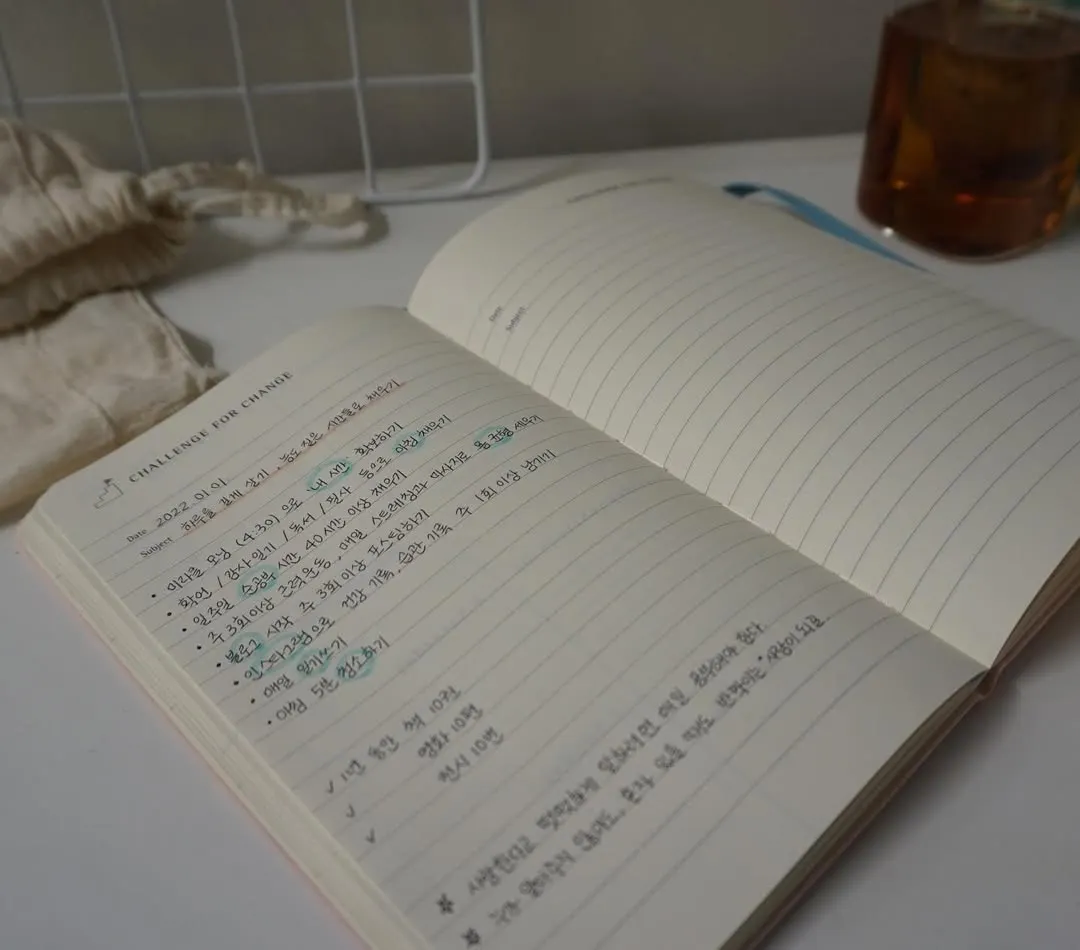 CHALLENGE FOR CHANGE
Date 2022.01.01.
Subject 하루를 길게 살기, 농도 짙은 시간들로 채우기
• 미라클 모닝 (4:30) 으로 내 시간 확보하기
• 확언 / 감사일기 / 독서 / 필사 등으로 아침 채우기
• 일주일 순공부 시간 40시간 이상 채우기
• 주 3회 이상 근력운동, 매일 스트레칭과 마사지로 몸 균형 세우기
• 블로그 시작 주 3회 이상 포스팅하기
• 인스타그램으로 건강 기록, 습관 기록 주 1회 이상 남기기
• 매일 일기쓰기
• 아침 5분 청소하기
✓ 1년 동안 책 10권
영화 10편
전시 10번
✓
✓
☆ 사랑한다고 떳떳하게 말하려면 매일 공부해야 한다.
☆ 알아주지 않아도, 혼자 있을 때도 반짝이는 사람이 되길
Date
Subject